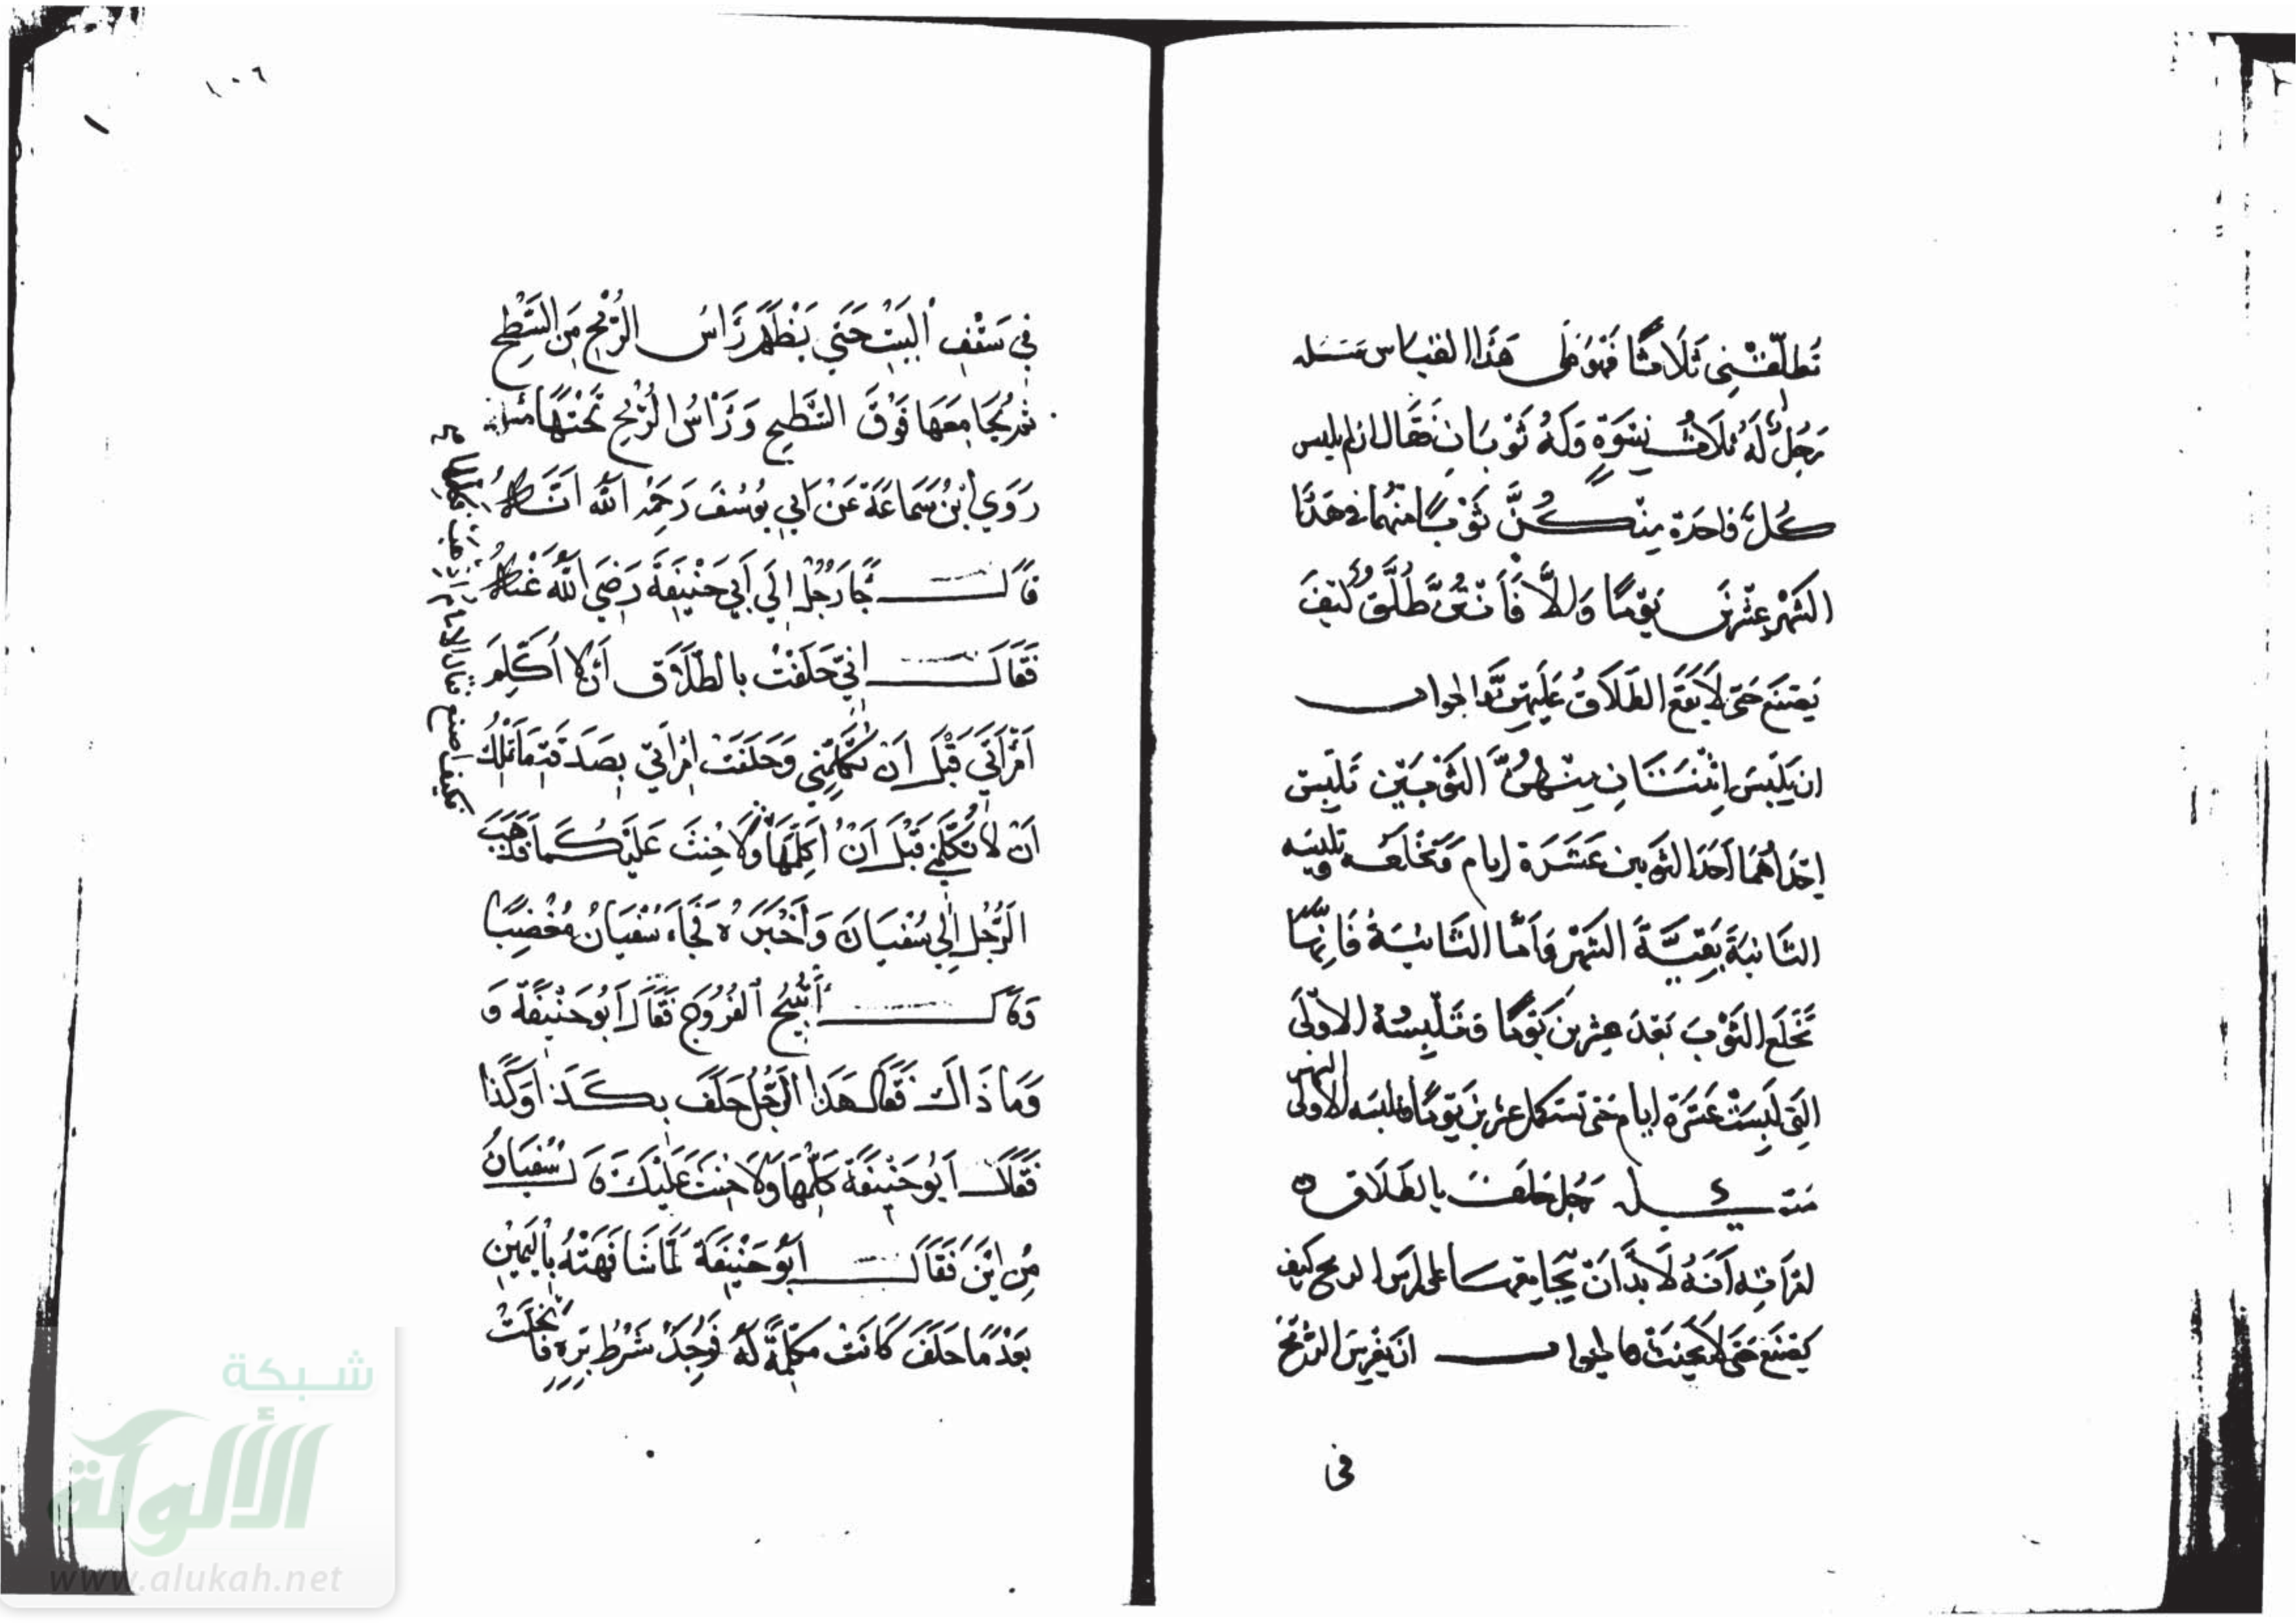 تُطَلِّقْنِي ثَلَاثًا فَهُوَ عَلَى هَذَا القياس مَسْئَله
رَجُلٌ لَهُ ثَلَاثُ نِسْوَةٍ وَلَهُ ثَوْبَانِ فَقَالَ ان لم يلبس
كُلُّ وَاحدَة مِنْكُنَّ ثَوْبًا مِنْهُمَا فى هَذَا
الشَهْرِ عِشْرِينَ يَوْمًا وَالاَّ فَأَنْتُنَّ طُلَّقٌ كَيْفَ
يَصْنَع حَتى لَا يَقَعَ الطَلَاقُ عَلَيْهِنَّ الجواب
ان يَلْبَسَ اثْنَتَانِ مِنْهُنَّ الثَوْبَيْنِ تَلْبس
اِحْدَاهُمَا اَحَدَ الثوبين عَشَرَة ايام وَتَخْلَعَه وتلبسه
الثَانِيَةَ بَقِيَّةَ الشَهْرِ وَاَمَّا الثَّانيَةُ فَاِنَّهَا
تَخْلَع الثَوْبَ بَعْدَ عِشْرِينَ يَوْمًا وَتَلْبِسُهُ الاولَى
التِى لَبِسَتْ عَشَرَة ايام حَتى تستكمل عشرين يَوْمًا
مَسْئَلة رَجُل حَلَفَ بالطَلَاق
لامْرَاَتِه اَنَّهُ لَا بُدَّ اَنْ يُجَامِعَهَا على راس الرمح كيف
يَصْنَع حَتَى لَا يَحْنَث فالجواب اَنْ يَغْرِسَ الرُّمْحَ
فى
١٠٦
فِي سَقْفِ البَيْتِ حَتَى يَظْهَرَ رَاسُ الرُمْحِ مِنَ السَّطِحِ
ثُمَّ يُجَامِعَهَا فَوْقَ السَّطِحِ وَرَاسُ الرُمْحِ تَحْتَهَا مسئلة
رَوَي اِبْنُ سَمَاعَةَ عَنْ اَبِي يُوسُفَ رَحِمَهُ الله اَنَّهُ
قَالَ جَاءَ رَجُلٌ اِلَي اَبِي حَنِيفَةَ رَضِيَ اللَّهُ عَنْهُ
فَقَالَ اِنِي حَلَفْتُ بِالطَّلَاقِ أَنْ لَا أُكَلِّمَ
اَمْرَأَتَي قَبْلَ اَنْ تُكَلِّمَنِي وَحَلَفَت امْرَاتِي بِصَدَقَةِ مَا تَمْلِكُ
اَنْ لَا تُكَلِّمَنِي قَبْلَ اَنْ اُكَلِمَهَا وَلَا حِنْثَ عَلَيْكُمَا فَذَهَبَ
الرَّجُل اِلِي سُفْيَانَ وَأَخْبَرَهُ فَجَاءَ سُفْيَانُ مُغْضِبًا
وَقَالَ أَتُبِيحُ الفُرُوجَ فَقَالَ اَبُو حَنِيفَةَ وَ
وَمَا ذَاكَ فَقَالَ هَذَا الرَّجُلُ حَلَفَ بِكَذَا وَكَذَا
فَقَالَ اَبُو حَنِيفَةَ كَلِّمْهَا وَلَا حِنْثَ عَلَيْكَ قَالَ سُفْيَانُ
مِنْ اَيْنَ فَقَالَ اَبُو حَنِيفَةَ لَمَّا شَافَهَتْهُ بِالْيَمِيْنِ
بَعْدَ مَا حَلَفَ كَانَتْ مُكَلِّمَةً لَهُ فَوُجِدَ شَرْطُ بَرِّهِ فانحَلَّتْ
شبكة
الألوكة
www.alukah.net